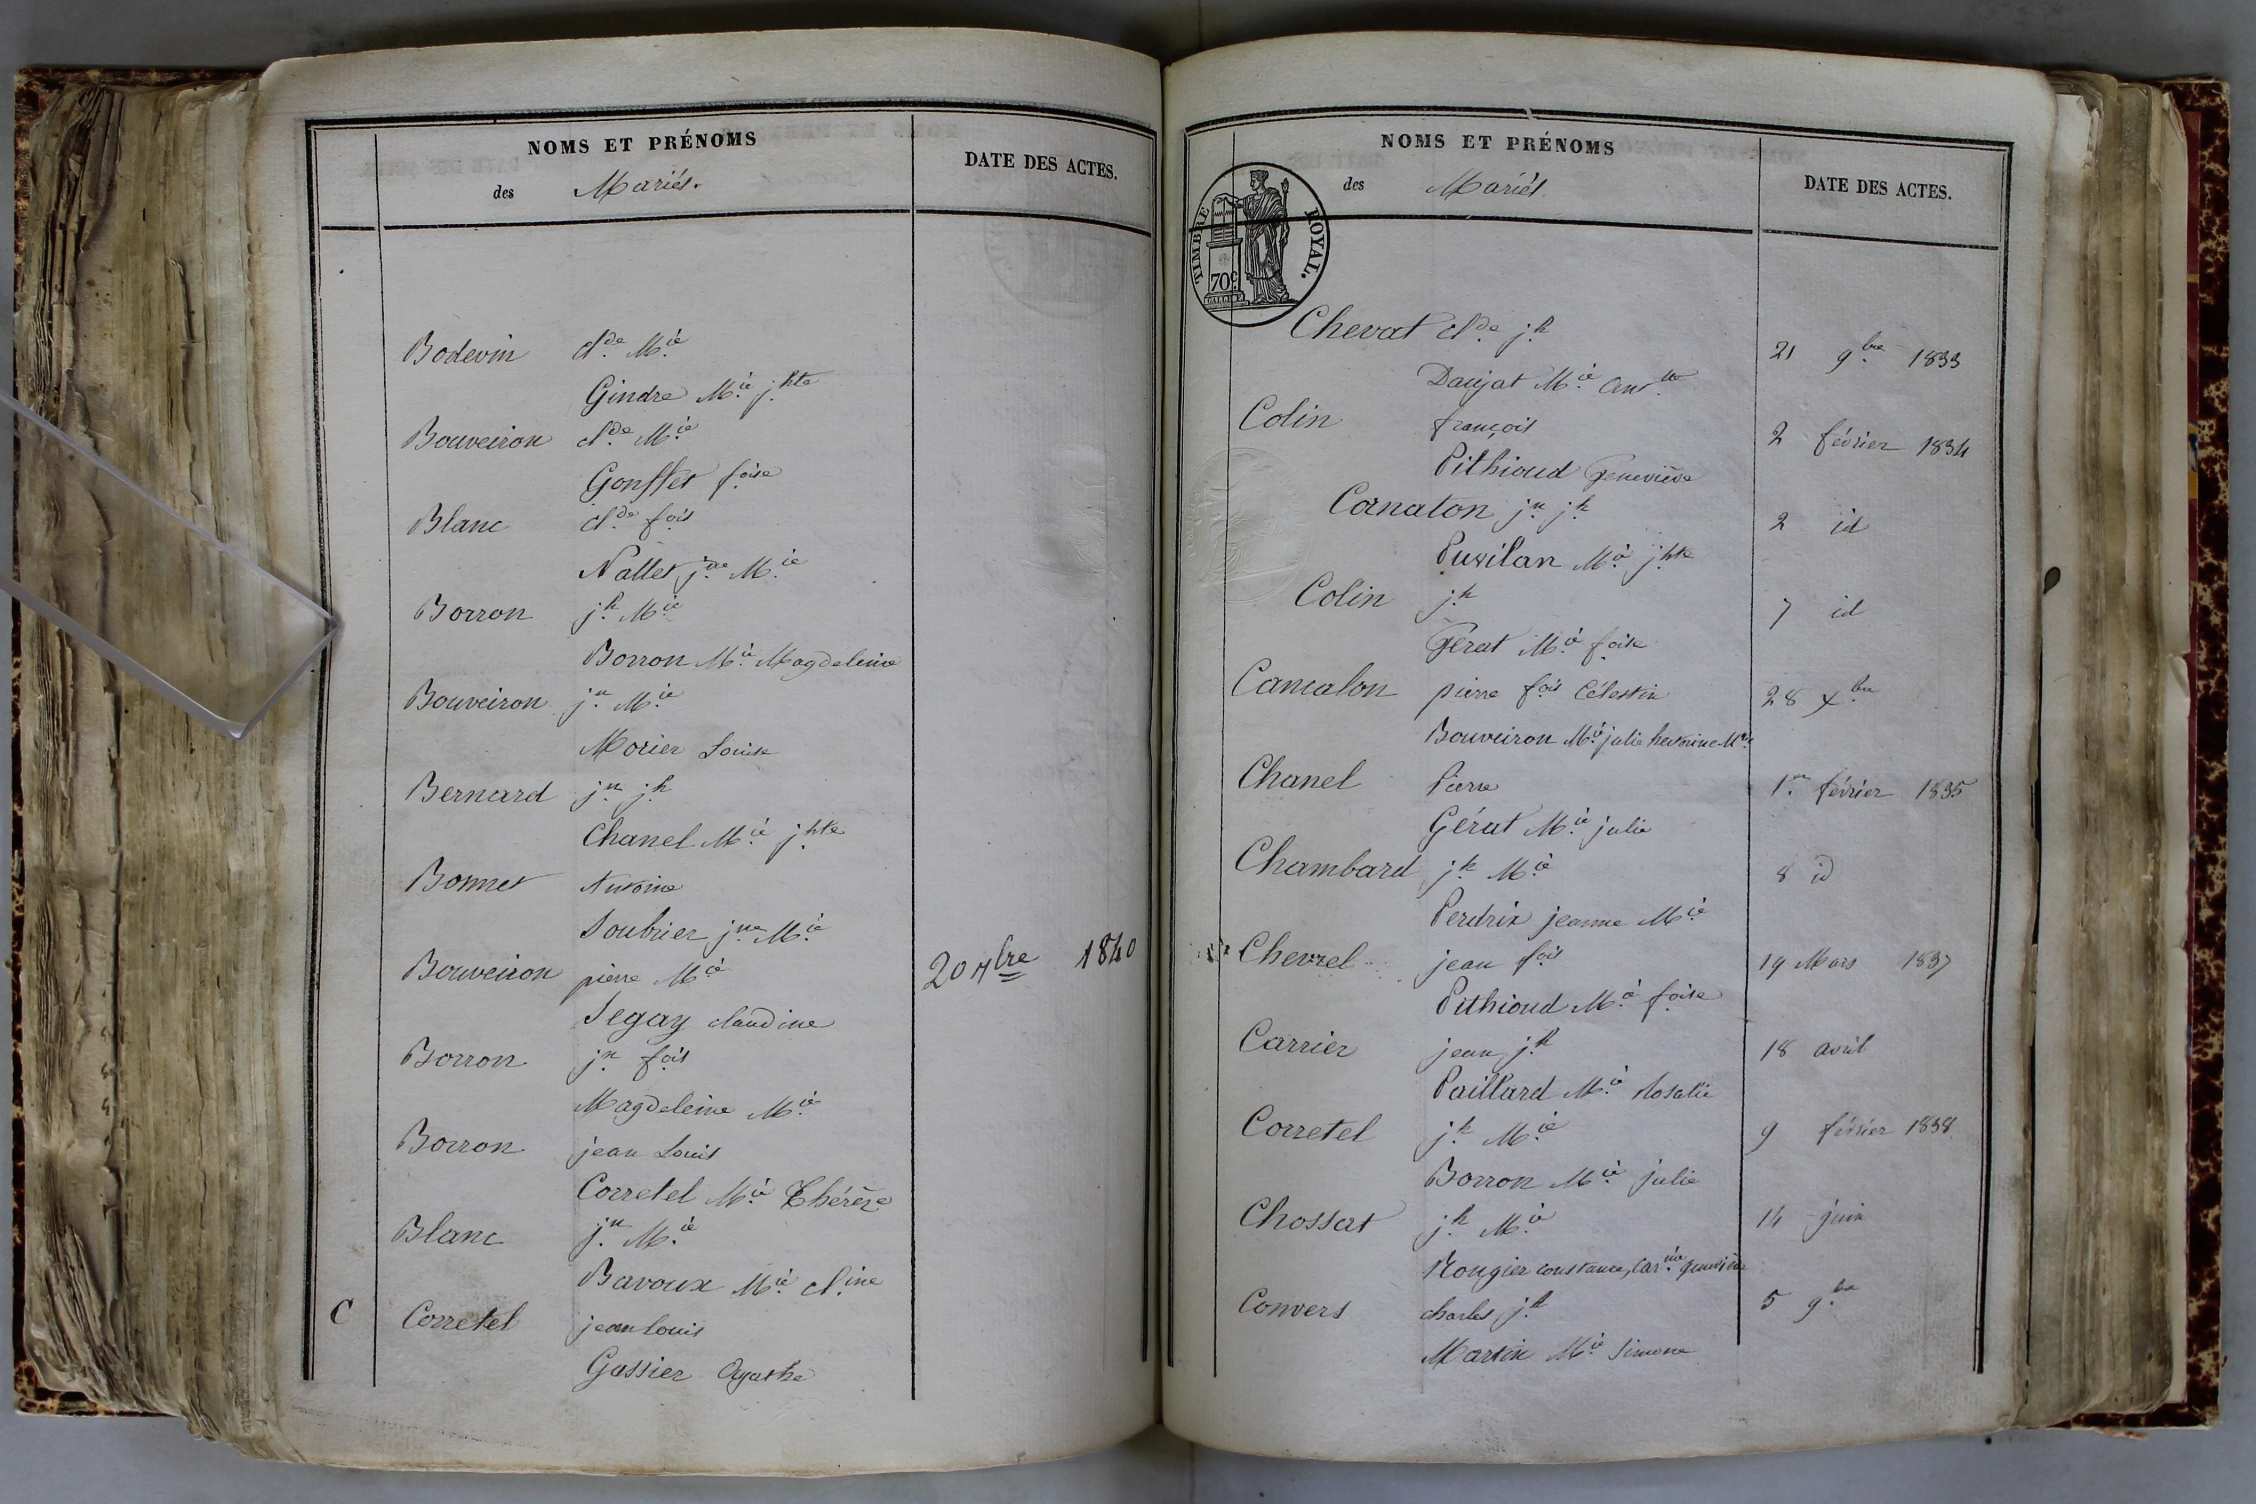 NOMS ET PRÉNOMS
des Mariés.
DATE DES ACTES.
Bodevin cl.de M.ie
Gindre M.ie j.hte
Bouveiron cl.de M.ie
Gonffet f.oise
Blanc cl.de f.ois
Nallet j.ne M.ie
Borron j.h M.ie
Borron M.ie Magdeleine
Bouveiron j.n M.ie
Morier Louise
Bernard j.n j.h
Chanel M.ie j.hte
Bonnet Antoine
Soubrier j.ne M.ie
Bouveiron pierre M.ie 20 7bre 1840
Segay claudine
Borron j.n f.ois
Magdeleine M.ie
Borron jean Louis
Corretel M.ie Thérèze
Blanc j.n M.ie
Bavoux M.ie cl.ine
C Corretel jean louis
Gassier Agathe
NOMS ET PRÉNOMS
des Mariés
DATE DES ACTES.
TIMBRE ROYAL.
70c.
Chevat cl.de j.h 21 9.bre 1833
Daujat M.ie Ant.tte
Colin françois 2 février 1834
Pithioud Geneviève
Cornaton j.n j.h 2 id
Puvilan M.ie j.hte
Colin j.h 7 id
Gérat M.ie f.oise
Cancalon pierre f.ois Célestin 28 x.bre
Bouveiron M.ie julie
Chanel Pierre 1.er février 1835
Gérat M.ie julie
Chambard j.h M.ie 8 id
Perdrix jeanne M.ie
Chevrel jean f.ois 19 Mars 1837
Pithioud M.ie f.oise
Carrier jean j.h 18 avril
Paillard M.ie Rosalie
Corretel j.h M.ie 9 février 1838
Borron M.ie julie
Chossat j.h M.ie 14 juin
Rougier constance, Car.ine geneviève
Convers charles j.h 5 9.bre
Martin M.ie Simone